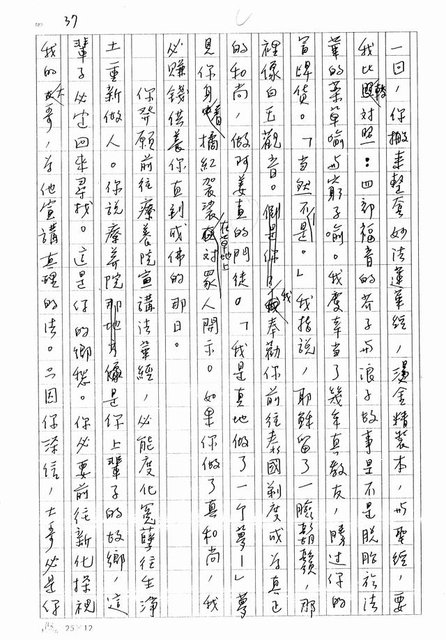 37
一日，你搬來整套妙法蓮華經，燙金精裝本，與聖經，要
我比照對照：四部福音的芥子與浪子故事是不是脫胎於法
華的藥草喻與窮子喻。我慶幸當了幾年真教友，騰過你的
冒牌貨。「當然不是。」我指說，耶穌留了一臉鬍鬚，那
裡像白玉觀音。倒是你我奉勸你前往泰國剃度成為真正
的和尚，做阿姜查的門徒。「我是真地做了一个夢！」夢
見你身著橘紅袈裟在草地上對眾人開示。如果你做了真和尚，我
必賺錢供養你直到成佛的那日。
你發願前往療養院宣講法華經，必能度化冤孽往生淨
土重新做人。你說療養院像是你上輩子的故鄉，這
輩子必定回來尋找。這是你的鄉愁。你必要前往新化探視
我的大哥，為他宣講真理的法。只因你深信，大哥必是你
25×12